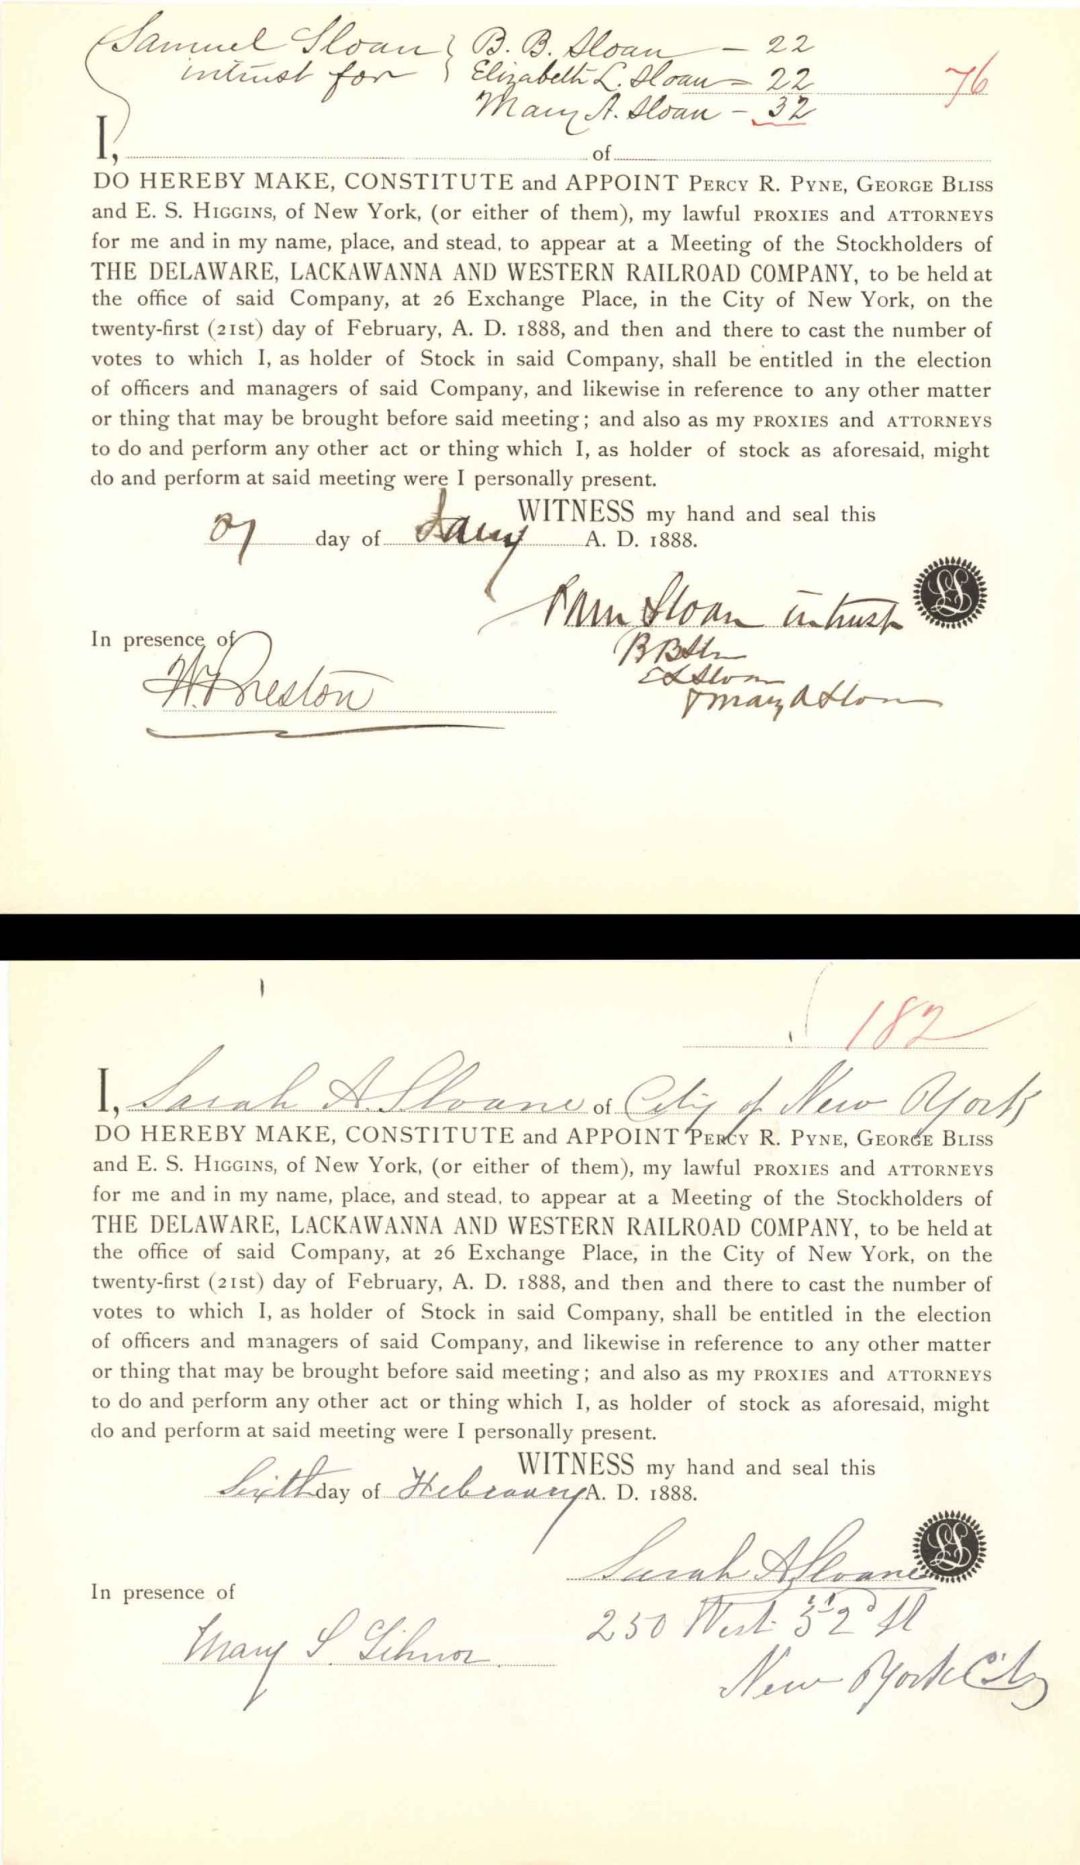 Samuel Sloan { B. B. Sloan — 22
intrust for Elizabeth L. Sloan = 22 76
Mary A. Sloan — 32
I, of
DO HEREBY MAKE, CONSTITUTE and APPOINT PERCY R. PYNE, GEORGE BLISS
and E. S. HIGGINS, of New York, (or either of them), my lawful PROXIES and ATTORNEYS
for me and in my name, place, and stead, to appear at a Meeting of the Stockholders of
THE DELAWARE, LACKAWANNA AND WESTERN RAILROAD COMPANY, to be held at
the office of said Company, at 26 Exchange Place, in the City of New York, on the
twenty-first (21st) day of February, A. D. 1888, and then and there to cast the number of
votes to which I, as holder of Stock in said Company, shall be entitled in the election
of officers and managers of said Company, and likewise in reference to any other matter
or thing that may be brought before said meeting; and also as my PROXIES and ATTORNEYS
to do and perform any other act or thing which I, as holder of stock as aforesaid, might
do and perform at said meeting were I personally present.
WITNESS my hand and seal this
day of Jany A. D. 1888.
Sam Sloan intrust
In presence of
B B Sloan
E L Sloan
W. Preston
Mary A Sloan
LS
182
I, Sarah A. Sloane of City of New York
DO HEREBY MAKE, CONSTITUTE and APPOINT PERCY R. PYNE, GEORGE BLISS
and E. S. HIGGINS, of New York, (or either of them), my lawful PROXIES and ATTORNEYS
for me and in my name, place, and stead, to appear at a Meeting of the Stockholders of
THE DELAWARE, LACKAWANNA AND WESTERN RAILROAD COMPANY, to be held at
the office of said Company, at 26 Exchange Place, in the City of New York, on the
twenty-first (21st) day of February, A. D. 1888, and then and there to cast the number of
votes to which I, as holder of Stock in said Company, shall be entitled in the election
of officers and managers of said Company, and likewise in reference to any other matter
or thing that may be brought before said meeting; and also as my PROXIES and ATTORNEYS
to do and perform any other act or thing which I, as holder of stock as aforesaid, might
do and perform at said meeting were I personally present.
WITNESS my hand and seal this
Sixth day of February A. D. 1888.
Sarah A Sloane LS
In presence of
250 West 32d St
Mary S. Gilmor
New York City